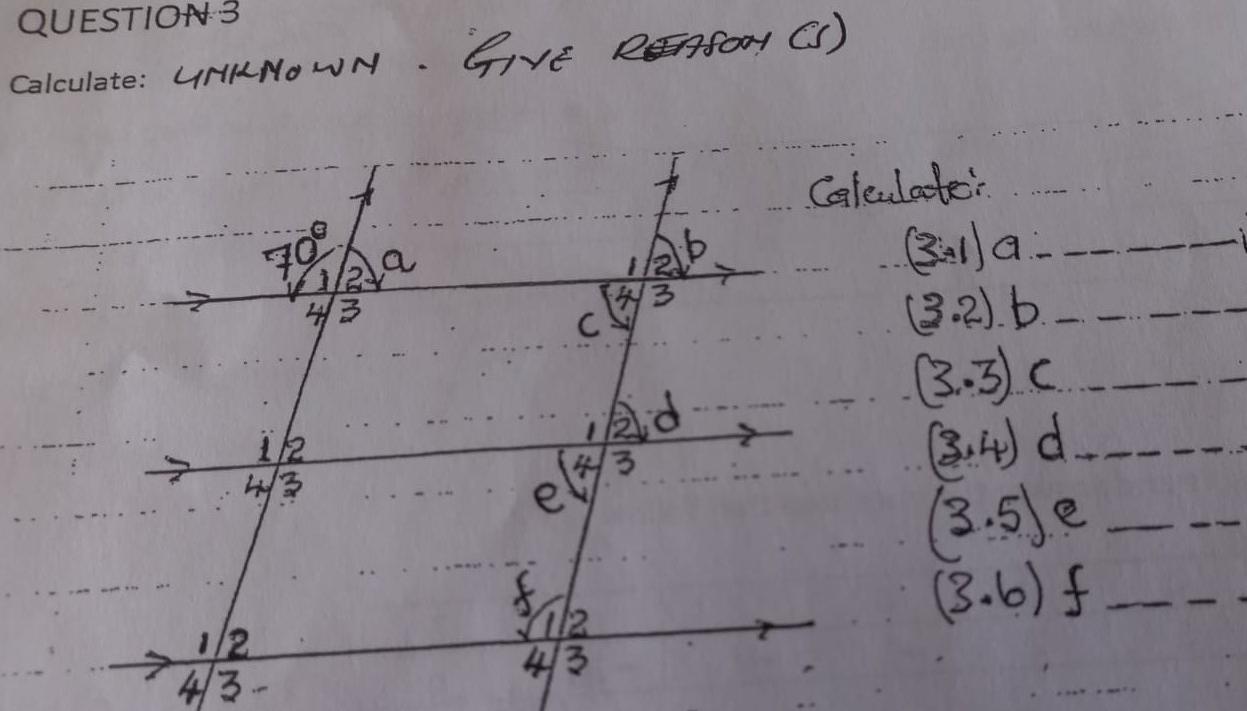 QUESTION 3
Calculate: UNKNOWN . GIVE REASON (S)
Calculate:
70° a
1 2
4 3
b
1 2
4 3
c
(3.1) a
(3.2) b
(3.3) c
1 2
4 3
d
1 2
4 3
e
(3.4) d
(3.5) e
(3.6) f
f
1 2
4 3
1 2
4 3